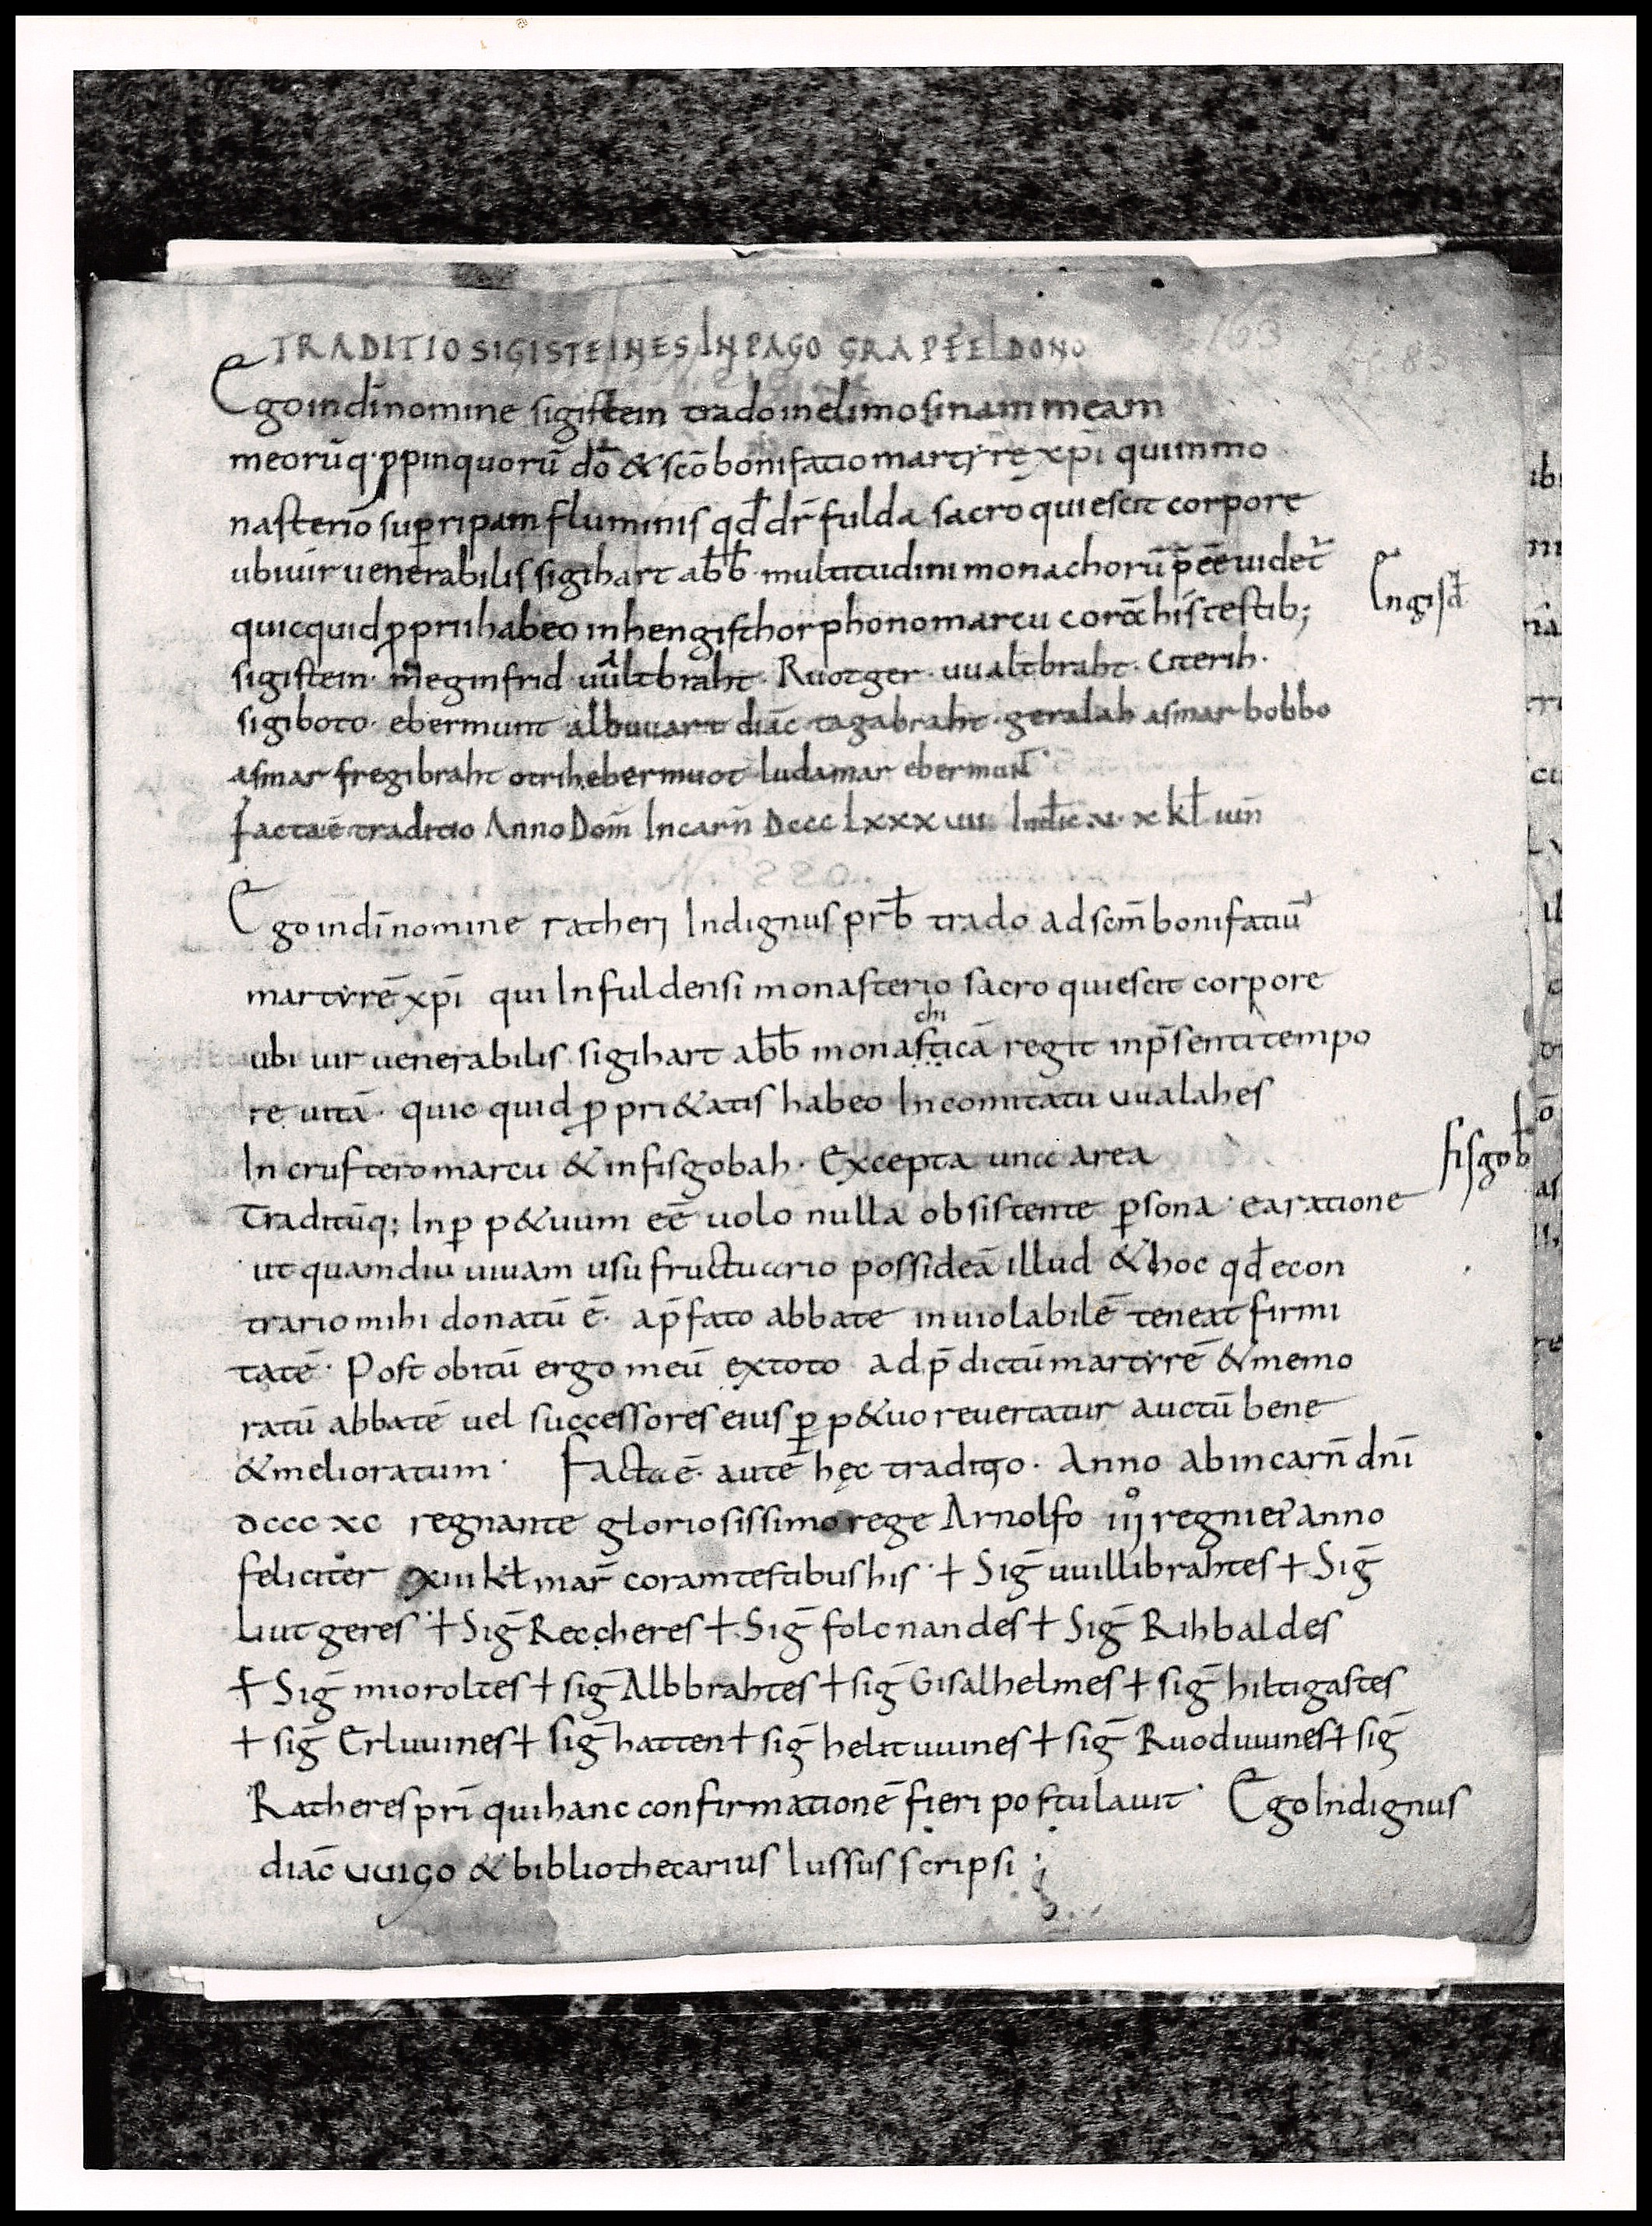 TRADITIO SIGISTEINES IN PAGO GRAPFELDONO
163
83
Ego indī nomine sigistein trado in elimosinam meam
meorūq· ꝓpinquorū dō & scō bonifatio martyrę xp̄i qui in mo
nasterio sup̱ ripam fluminis qđ dr̄ fulda sacro quiescit corpore
ubi uir uenerabilis sigihart abƀ multitudini monachorū p̄eē uidet̄
quicquid ꝓprii habeo in hengisthorphono marcu corā his testib;
sigistein· meginfrid· uualtbraht· Ruotger· uualtbraht· Oterih·
sigiboto· ebermunt albuuart diac̄ tagabraht· geralah asmar bobbo
asmar fregibraht otrih ebermuot ludamar ebermunt·
Facta ē traditio Anno Dom̄ Incarn̄ Dccc Lxxxvii Indic̄ v· x kł iun̄
Engisđ
N. 220.
Ego indī nomine ratheri Indignus prƀ trado ad scm̄ bonifatiū
martyrē xp̄i qui In fuldensi monasterio sacro quiescit corpore
chi
ubi uir uenerabilis sigihart abƀ monasticā regit in p̄senti tempo
re uitā· quic quid ꝓpri&atis habeo In comitatu uualahes
In cruftero marcu & in fisgobah· Excepta una area
fisgob
Traditūq; In p̱ p&uum eē uolo nulla obsistente p̱sona· ea ratione
ut quamdiu uiuam usu fructuario possideā illud & hoc qđ econ
trario mihi donatū ē· a p̄fato abbate inuiolabilē teneat firmi
tatē· Post obitū ergo meū ex toto ad p̄dictū martyrē & memo
ratū abbatē uel successores eius p̱ p&uo reuertatur auctū bene
& melioratum· Facta ē· autē hęc traditio· Anno ab incarn̄ dnī
dccc xc regnante gloriosissimo rege Arnolfo iij° regni ei' anno
feliciter xiii kł mar̄ coram testibus his· + Siḡ uuillibrahtes + Siḡ
Liutgeres· + Siḡ Reccheres + Siḡ folcnandes + Siḡ Rihbaldes
+ Siḡ mioroltes + siḡ Albbrahtes + siḡ Gisalhelmes + siḡ hiltigastes
+ siḡ Erluuines + siḡ hatten + siḡ helituuines + siḡ Ruoduuines + siḡ
Ratheres prī qui hanc confirmationē fieri postulauit· Ego Indignus
diac̄ uuigo & bibliothecarius Iussus scripsi ;